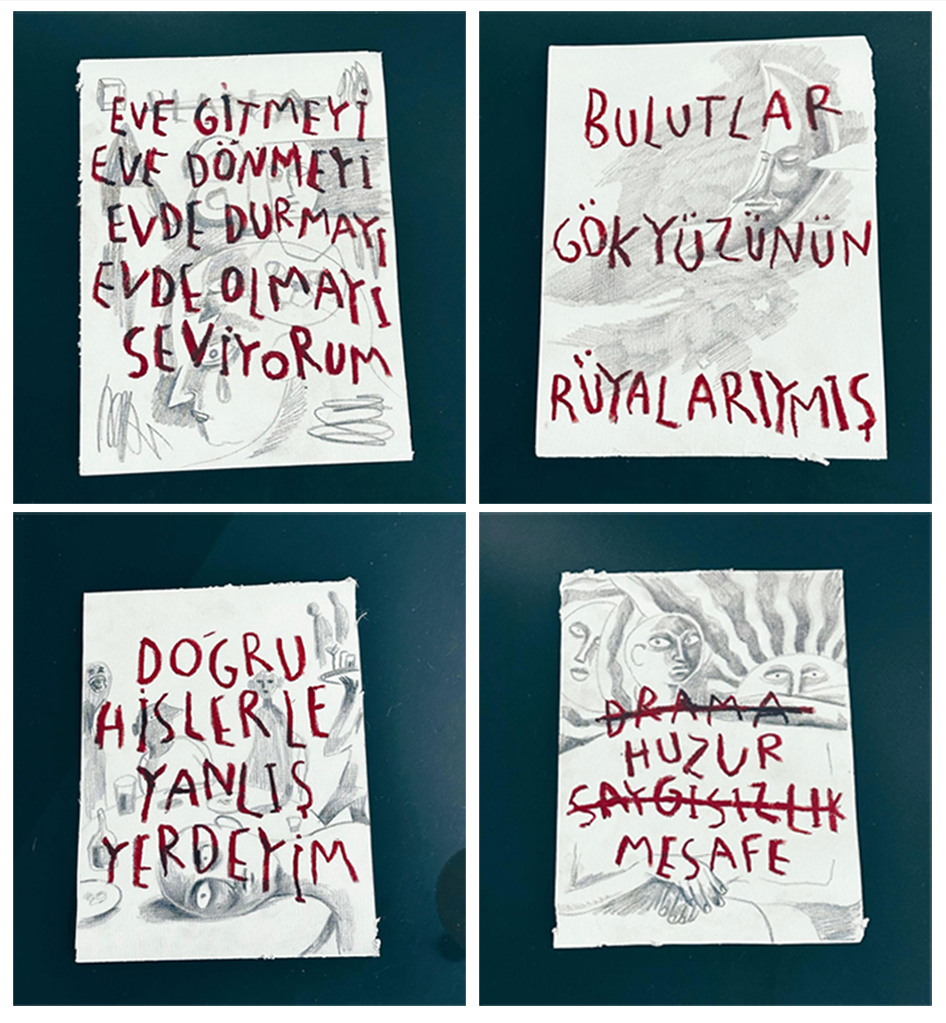 EVE GİTMEYİ
EVE DÖNMEYİ
EVDE DURMAYI
EVDE OLMAYI
SEVİYORUM
BULUTLAR
GÖKYÜZÜNÜN
RÜYALARIYMIŞ
DOĞRU
HİSLERLE
YANLIŞ
YERDEYİM
DRAMA
HUZUR
SAYGISIZLIK
MESAFE